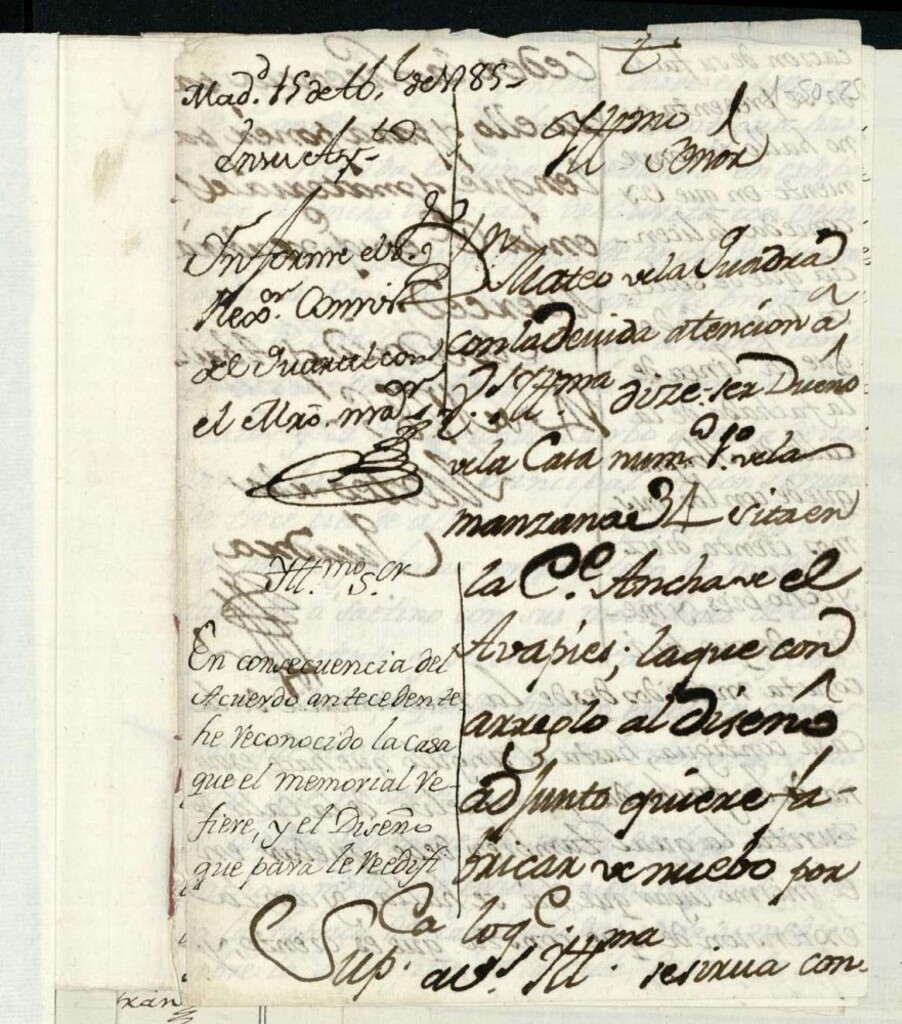 Mad.d 15 de Ab.l de 1785-
En su Ay.to
Informe el S.
Reg.or Comis.
del Quartel con
el Mro. m.or
Ill.mo S.or
En consecuencia del
Acuerdo antecedente
he reconocido la casa
que el memorial re-
fiere, y el Diseño
que para le reedifi
Ill.mo Señor
Dn. Mateo de la Quadra
con la devida atencion a
V.S. Ill.ma dize ser Dueño
de la Casa num.o 1.o de la
manzana 34 sita en
la C.e Ancha de el
Avapies; la que con
arreglo al diseño
adjunto quiere fa-
bricar de nuebo por
lo q.e
Sup.ca a V.S. Ill.ma se sirva con